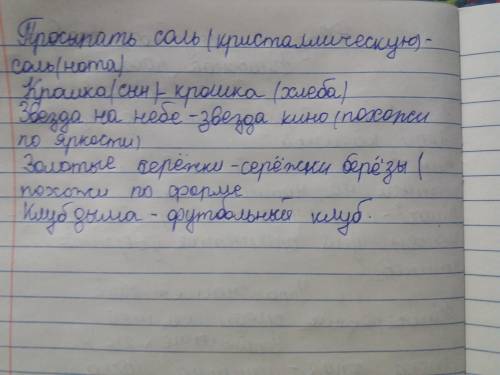 Просыпать соль (кристаллическую)-
соль(нота)
Крошка(снн)- крошка (хлеба)
Звезда на небе-звезда кино(похожи
по яркости)
Золотые серёжки-серёжки берёзы (
похожи по форме
Клуб дыма - футбольный клуб.